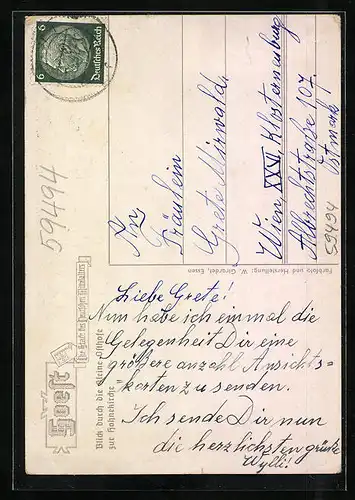 Deutsches Reich
6 6
An
Fräulein
Grete Mirwald,
Wien, XXVI, Klosterneuburg
Albrechtstraße 107,
Ostmark!
59494
59494
Farbfoto und Herstellung: W. Girardet, Essen
Soest
Die Stadt des deutschen Mittelalters
Blick durch die kleine Osthofe
zur Hohnekirche
Liebe Grete!
Nun habe ich einmal die
Gelegenheit Dir eine
größere anzahl Ansichts-
karten zu senden.
Ich sende Dir nun
die herzlichsten grüße
Wylli!